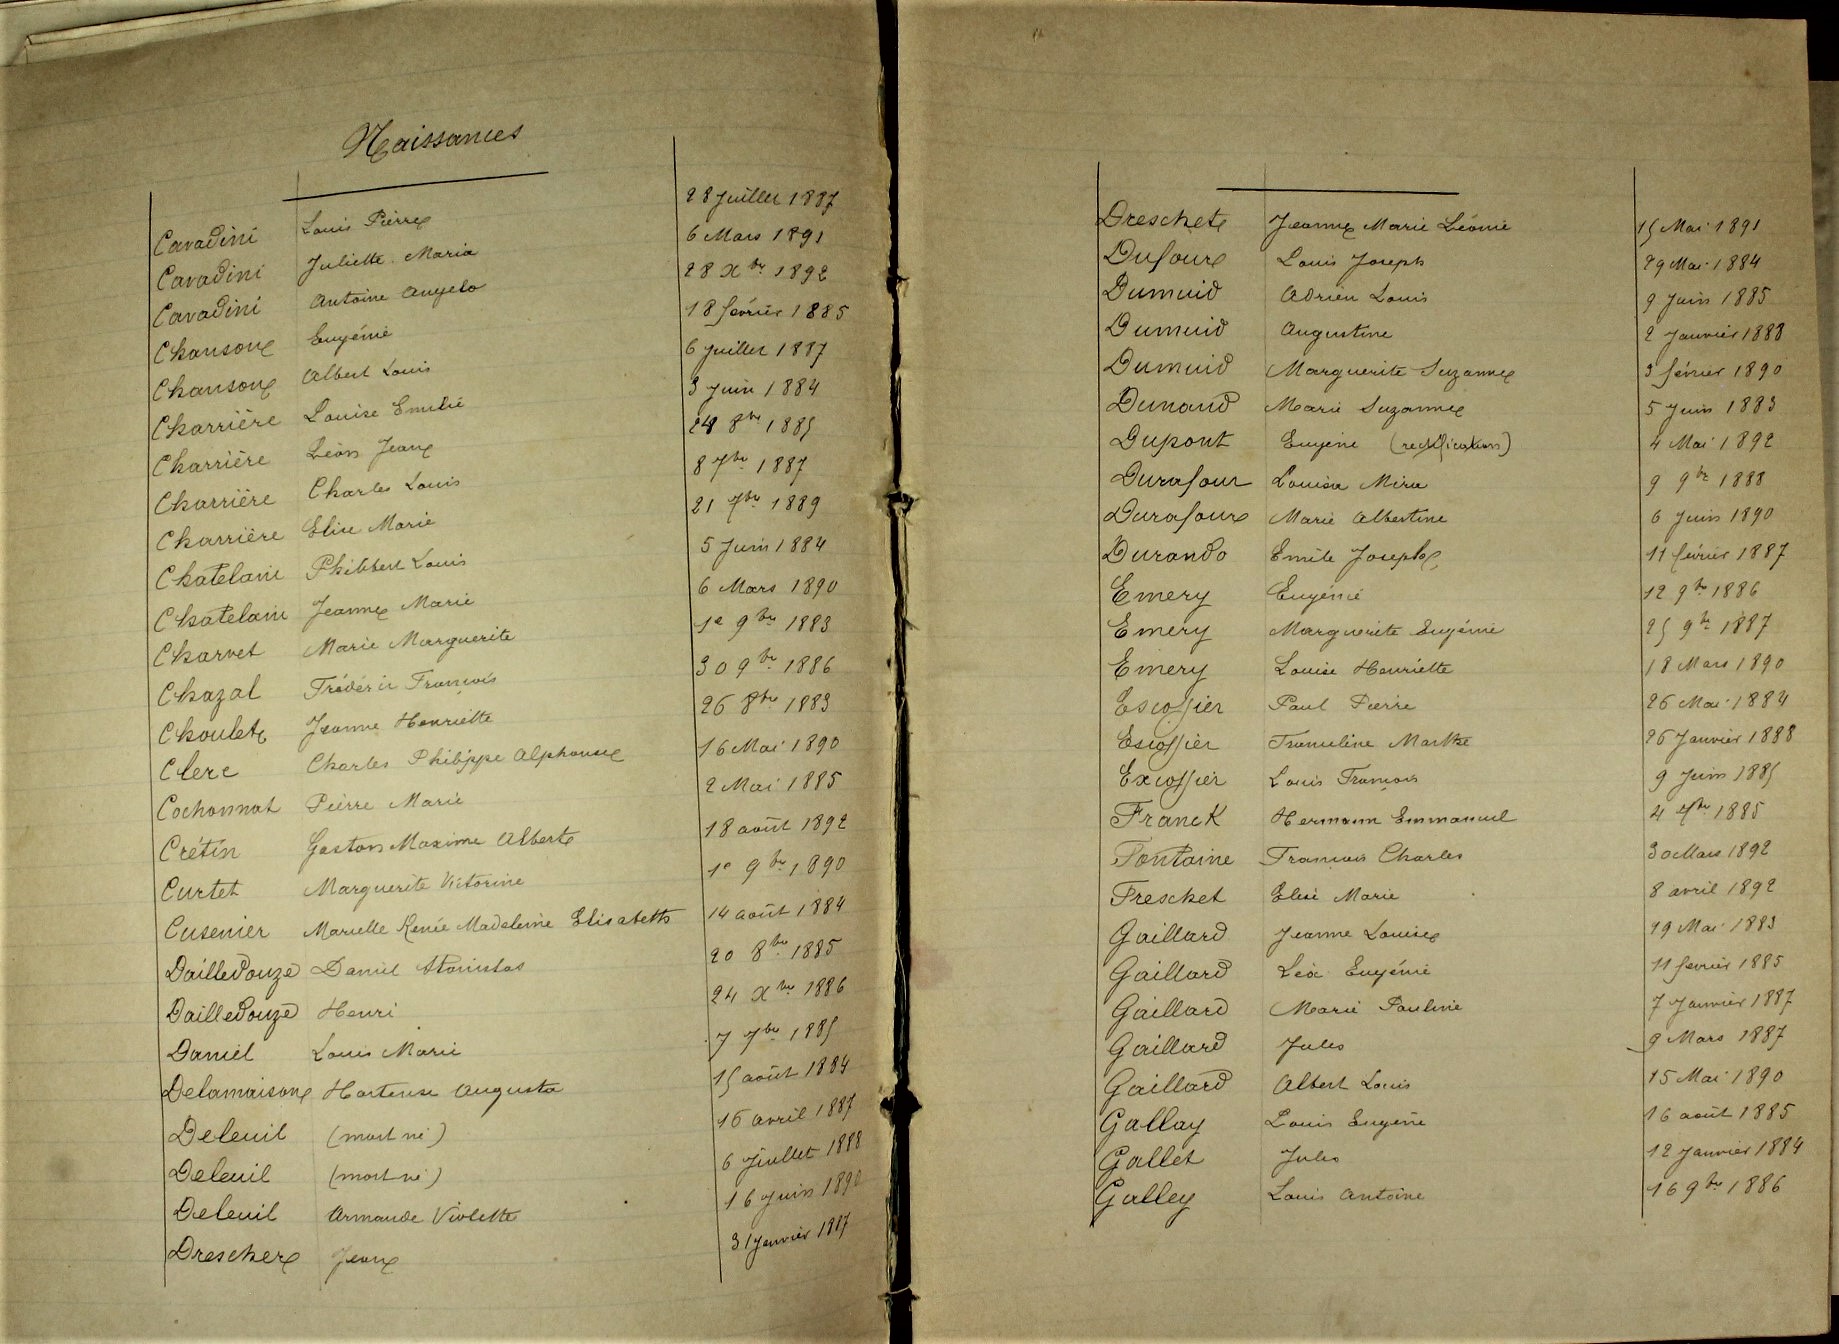 Naissances
Cavadini Louis Pierre 28 Juillet 1887
Cavadini Juliette Maria 6 Mars 1891
Cavadini Antoine Angelo 28 Xbre 1892
Chanson Eugénie 18 février 1885
Chanson Albert Louis 6 Juillet 1887
Charrière Louise Emélie 3 Juin 1884
Charrière Léon Jean 8bre 1885
Charrière Charles Louis 8 7bre 1887
Charrière Elise Marie 21 7bre 1889
Chatelain Philibert Louis 5 Juin 1884
Chatelain Jeanne Marie 6 Mars 1890
Charvet Marie Marguerite 1e 9bre 1883
Chazal Frédéric François 30 9bre 1886
Choulet Jeanne Henriette 26 8bre 1883
Clerc Charles Philippe Alphonse 16 Mai 1890
Cochonnat Pierre Marie 2 Mai 1885
Crétin Gaston Maxime Albert 18 août 1892
Curtet Marguerite Victorine 1e 9bre 1890
Cusenier Marielle Renée Madeleine Elisabeth 14 août 1884
Dailledouze Daniel Stanislas 20 8bre 1885
Dailledouze Henri 24 Xbre 1886
Daniel Louis Marie 7 7bre 1885
Delamaison Hortense Augusta 15 août 1884
Deleuil (mort né) 16 avril 1887
Deleuil (mort né) 6 Juillet 1888
Deleuil Armande Violette 16 Juin 1890
Drescher Jean 31 Janvier 1887
Dreschet Jeanne Marie Léonie 15 Mai 1891
Dufour Louis Joseph 29 Mai 1884
Dumuid Adrien Louis 9 Juin 1885
Dumuid Augustine 2 Janvier 1888
Dumuid Marguerite Suzanne 3 février 1890
Dunand Marie Suzanne 5 Juin 1883
Dupont Eugène (rectification) 4 Mai 1892
Durafour Louisa Mira 9 9bre 1888
Durafour Marie Albertine 6 Juin 1890
Durando Emile Joseph 11 février 1887
Emery Eugénie 12 9bre 1886
Emery Marguerite Eugénie 25 9bre 1887
Emery Louise Henriette 18 Mars 1890
Escoffier Paul Pierre 26 Mai 1884
Escoffier Franceline Marthe 26 Janvier 1888
Excoffier Louis François 9 Juin 1885
Franck Hermann Emmanuel 4 7bre 1885
Fontaine François Charles 30 Mars 1892
Freschet Elise Marie 8 avril 1892
Gaillard Jeanne Louise 19 Mai 1883
Gaillard Léa Eugénie 11 février 1885
Gaillard Marie Pauline 7 Janvier 1887
Gaillard Jules 9 Mars 1887
Gaillard Albert Louis 15 Mai 1890
Gallay Louis Eugène 16 août 1885
Gallet Jules 12 Janvier 1884
Galley Louis Antoine 16 9bre 1886